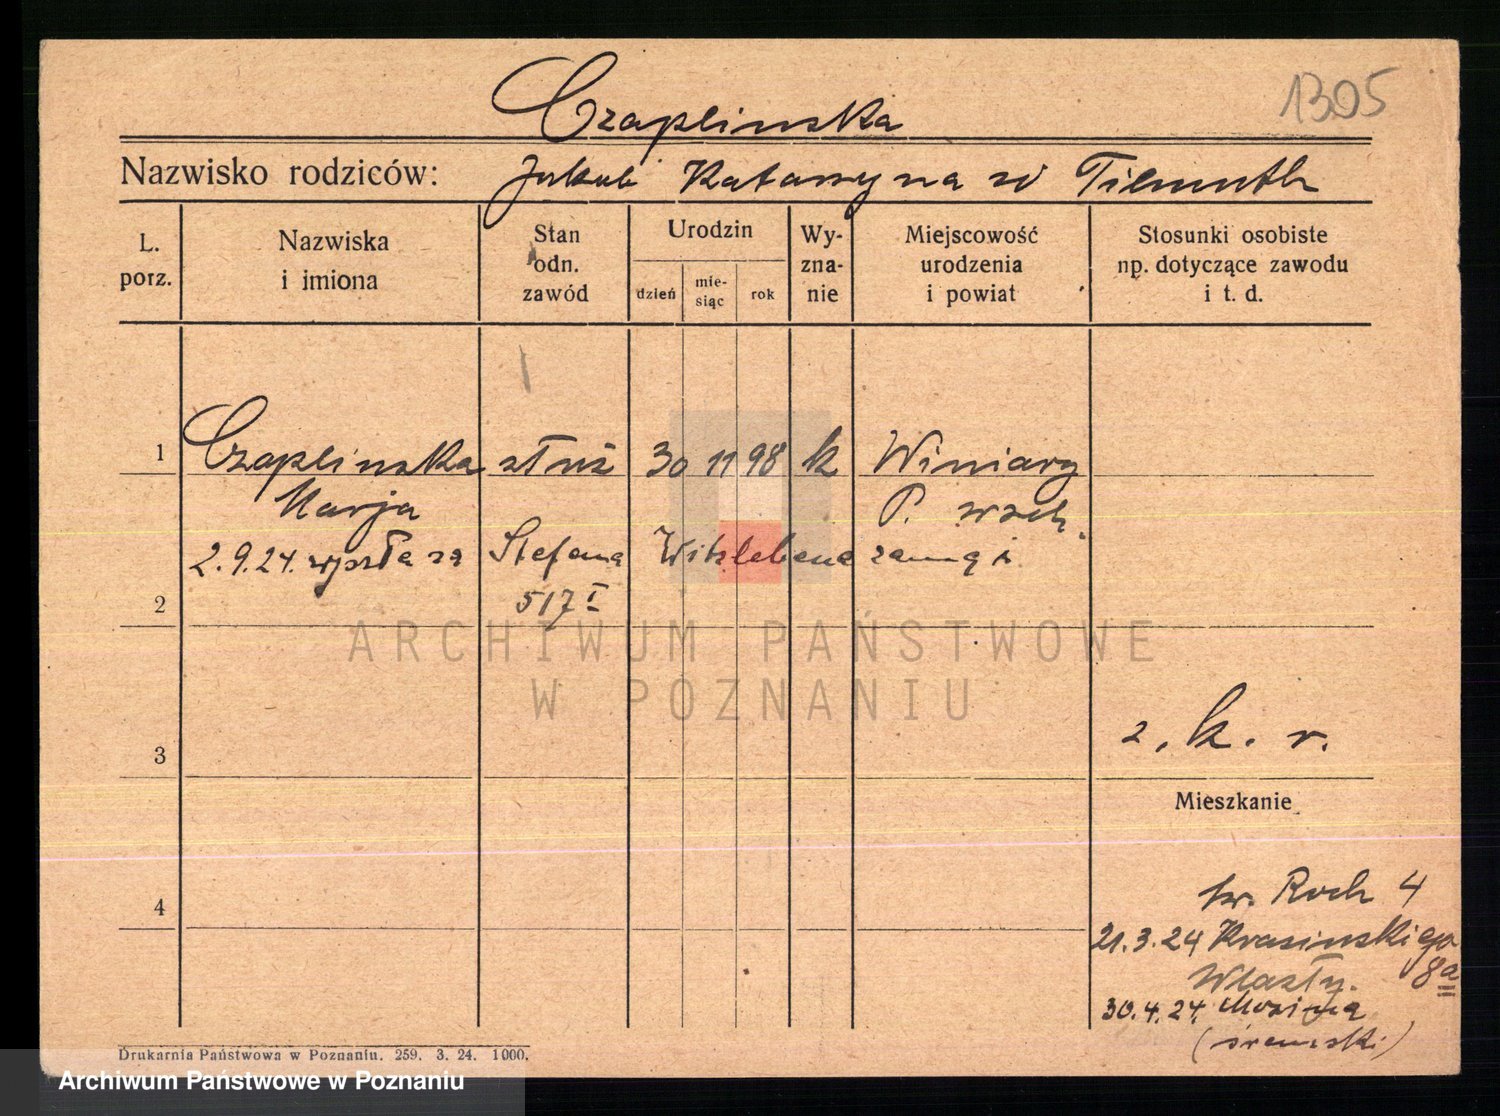 1305
Czaplinska
Nazwisko rodziców: Jakub Katarzyna zd
L. porz.
Nazwiska i imiona
Stan odn. zawód
Urodzin
dzień
mie-
siąc
rok
Wy-
zna-
nie
Miejscowość
urodzenia
i powiat
Stosunki osobiste
np. dotyczące zawodu
i t. d.
1 Czaplinska służ 30 11 98 k Winiary
Marja P. wsch.
2.9.24. wyszła za Stefana Witzlebena zamąż
2 517 I
ARCHIWUM PAŃSTWOWE
W POZNANIU
3 2. k. r.
Mieszkanie
4 św. Roch 4
21.3.24 Krasinskiego
8a
30.4.24. Mosina
(śremski)
Drukarnia Państwowa w Poznaniu. 259. 3. 24. 1000.
Archiwum Państwowe w Poznaniu